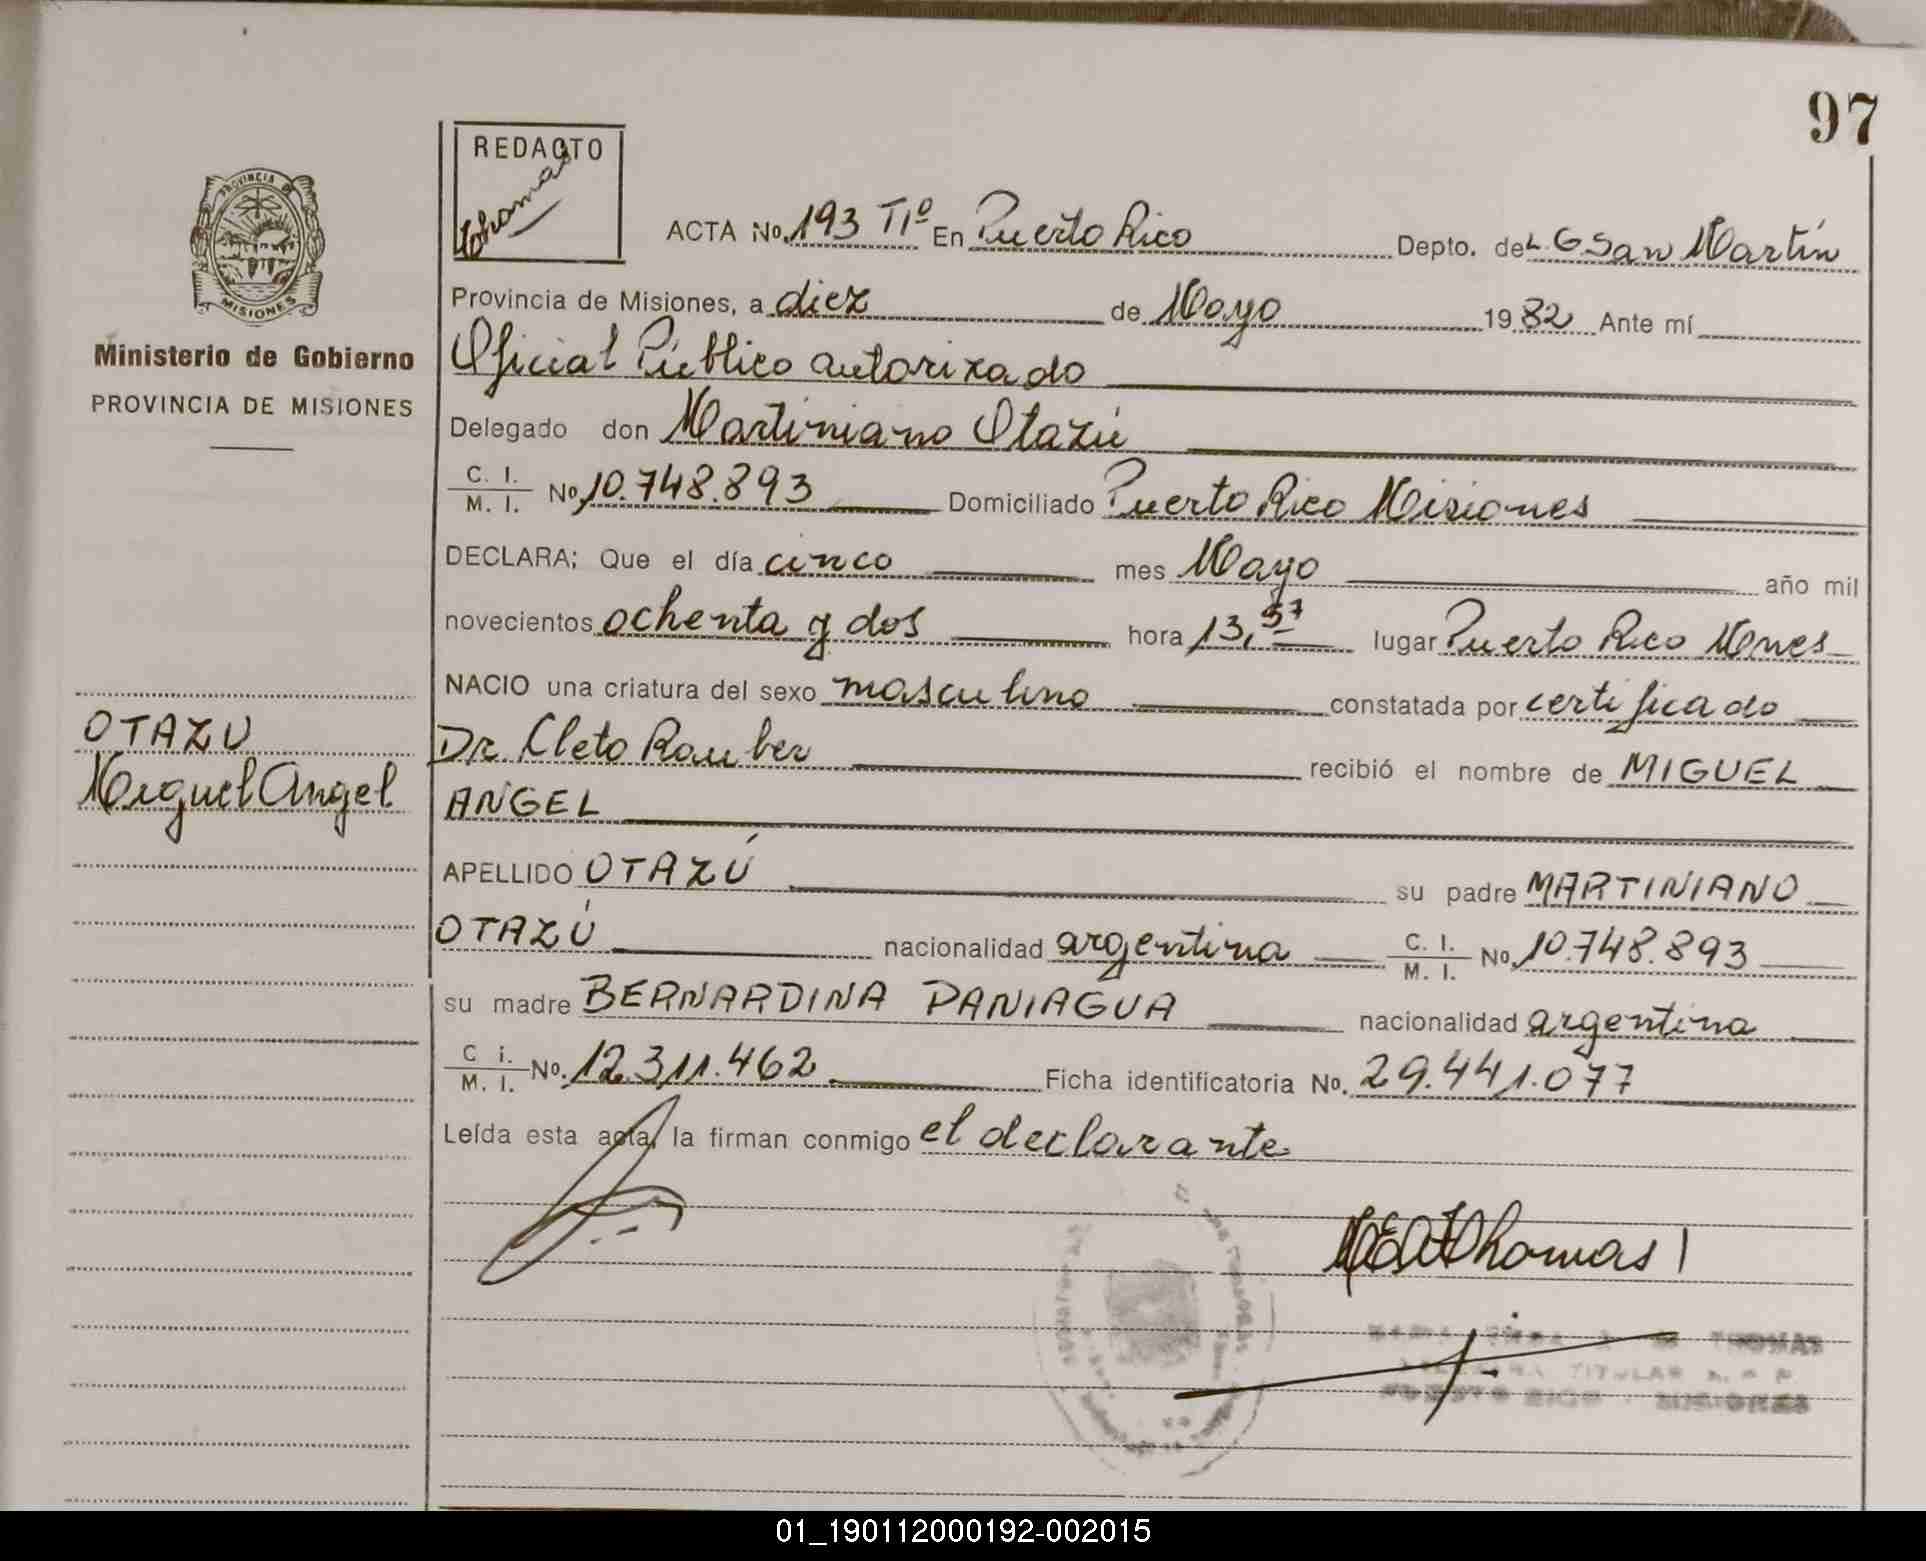 97
REDACTO
Thomas
PROVINCIA DE
MISIONES
Ministerio de Gobierno
PROVINCIA DE MISIONES
ACTA No. 193 Tº En Puerto Rico Depto. de L. G San Martín
Provincia de Misiones, a diez de Mayo 1982 Ante mí
Oficial Público autorizado
Delegado don Martiniano Otazú
C. I. / M. I. No. 10.748.893 Domiciliado Puerto Rico Misiones
DECLARA; Que el día cinco mes Mayo año mil
novecientos ochenta y dos hora 13,57 lugar Puerto Rico Mnes
NACIO una criatura del sexo masculino constatada por certificado
Dr. Cleto Rauber recibió el nombre de MIGUEL
ANGEL
APELLIDO OTAZÚ su padre MARTINIANO
OTAZÚ nacionalidad argentina C. I. / M. I. No. 10.748.893
su madre BERNARDINA PANIAGUA nacionalidad argentina
C i. / M. I. No. 12.311.462 Ficha identificatoria No. 29.441.077
Leída esta acta, la firman conmigo el declarante
OTAZU
Miguel Angel
Thomas
TITULAR
01_190112000192-002015